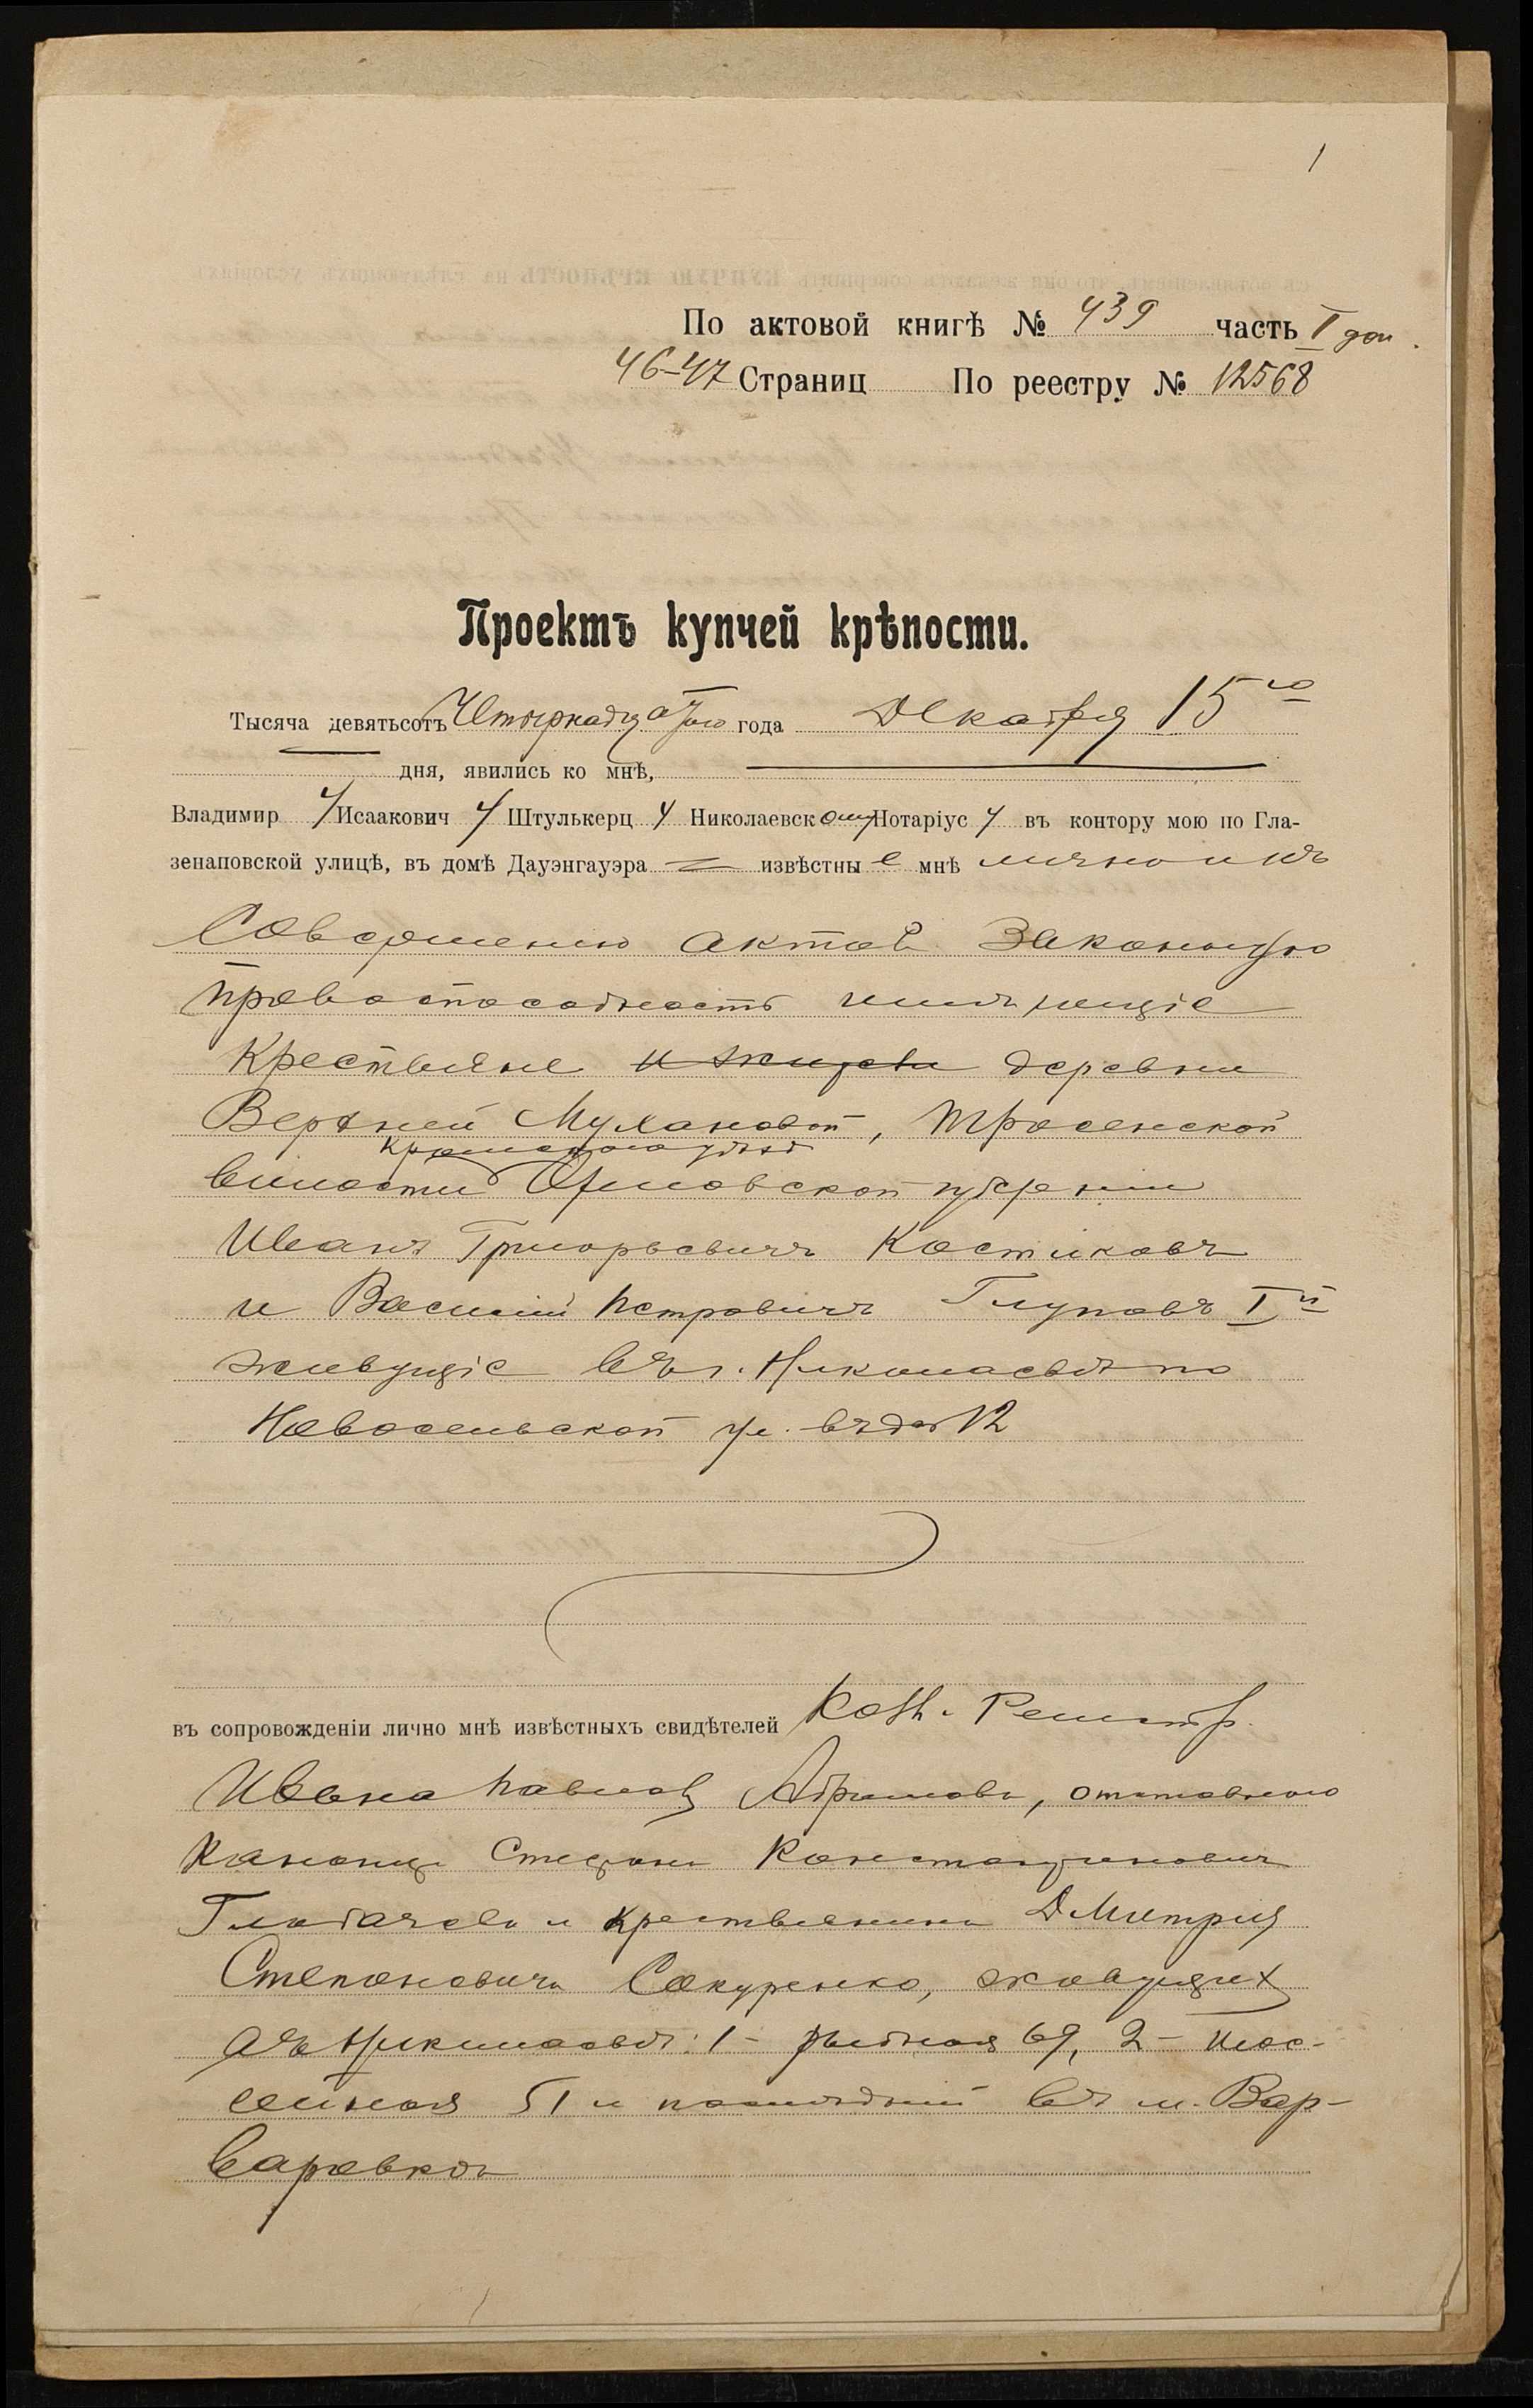 1
По актовой книгѣ № 439 часть I доп.
46-47 Страниц По реестру № 12568
Проектъ купчей крѣпости.
Тысяча девятьсотъ Четырнадцатаго года Декабря 15го
дня, явились ко мнѣ,
Владимир у Исаакович у Штулькерц у Николаевскому Нотаріус у въ контору мою по Гла-
зенаповской улицѣ, въ домѣ Дауэнгауэра извѣстны е мнѣ лично и къ
Совершенію актовъ Законную
правоспособность имѣющіе
Крестьяне деревни
Верхней Мухановой, Тросенской
Кромскаго уѣзда
волости Орловской губерніи
Иванъ Григорьевичъ Костиковъ
и Василій Петровичъ Глуповъ Iй
живущіе въ г. Николаевѣ по
Новосельской ул. въ д. № 12
въ сопровожденіи лично мнѣ извѣстныхъ свидѣтелей Колл. Регистр.
Ивана Павлов Абрамова, отставного
Стефана Константинович
и Крестьянина Дмитрія
Степановича Сокуренко, живущих
въ Николаевѣ: 1- Рыбная 69, 2- Шос-
сейная 51 и послѣдній въ м. Вар-
варовкѣ